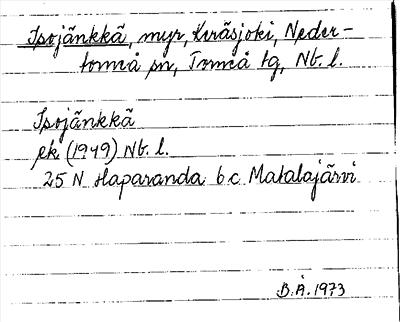 Isojänkkä, myr, Keräsjoki, Neder-
torneå sn, Torneå tg, Nb. l.
Isojänkkä
ek (1949) Nb. l.
25 N Haparanda 6 c Matalajärvi
B.Å. 1973